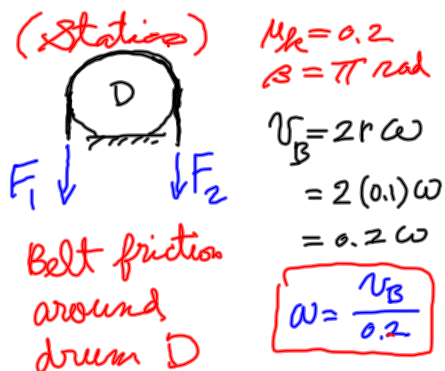 (Statics)
D
F₁
F₂
Belt friction
around
drum D
μₖ = 0.2
β = π rad
v_B = 2rω
= 2(0.1)ω
= 0.2ω
ω = v_B/0.2